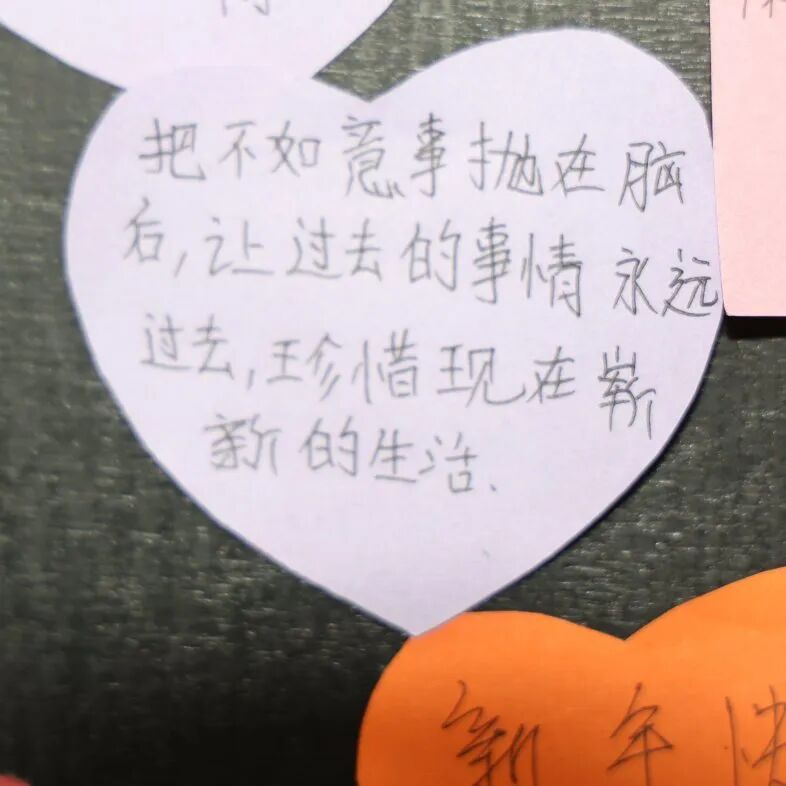 把不如意事抛在脑
后,让过去的事情永远
过去,珍惜现在崭
新的生活.
新年快